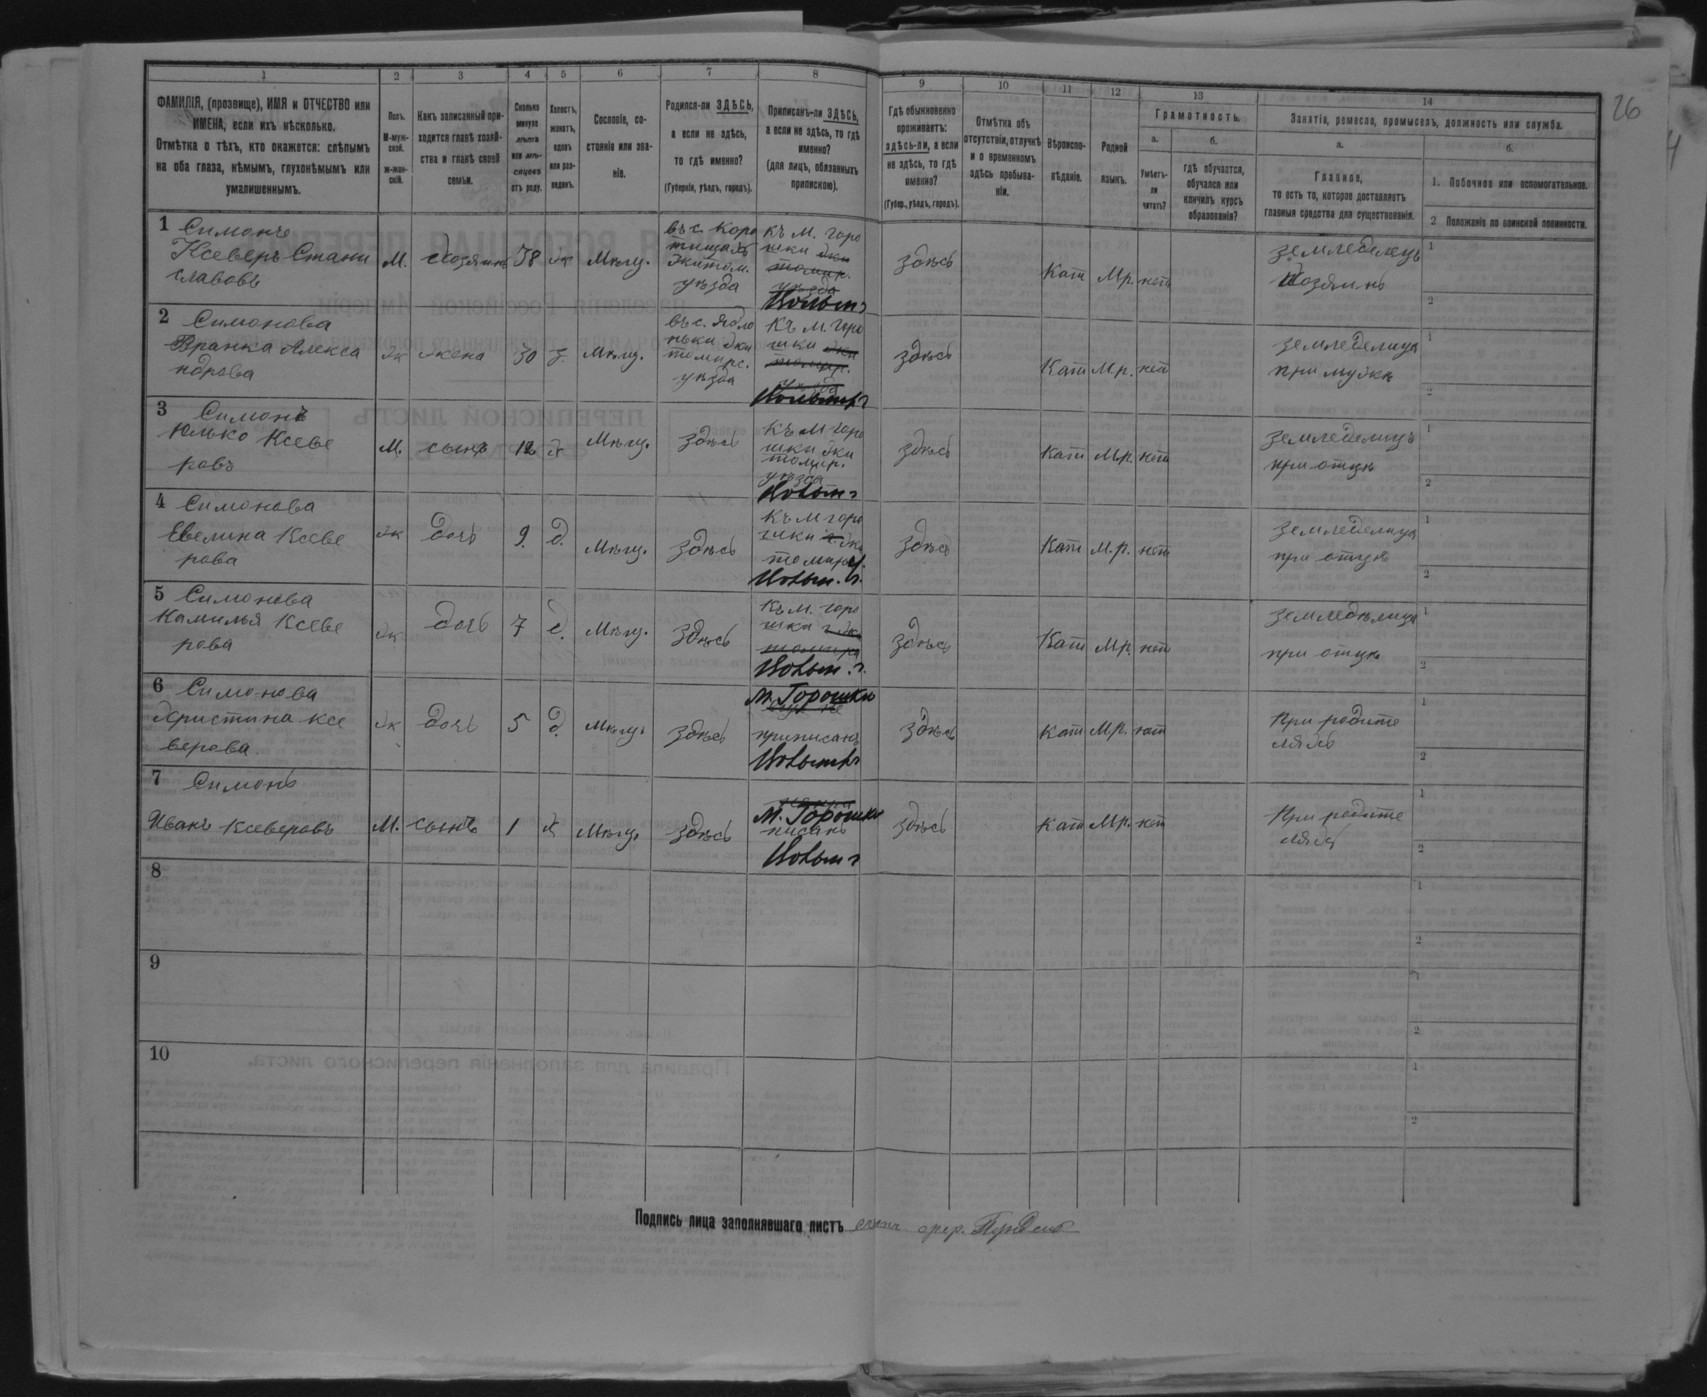 26
1 2 3 4 5 6 7 8 9 10 11 12 13 14
ФАМИЛІЯ, (прозвище), ИМЯ и ОТЧЕСТВО или
ИМЕНА, если ихъ нѣсколько.
Отмѣтка о тѣхъ, кто окажется: слѣпымъ
на оба глаза, нѣмымъ, глухонѣмымъ или
умалишеннымъ.
Полъ.
М-муж-
ской.
ж-жен-
скій.
Какъ записанный при-
ходится главѣ хозяй-
ства и главѣ своей
семьи.
Сколько
минуло
лѣтъ
или мѣ-
сяцевъ
отъ роду.
Холостъ,
женатъ,
вдовъ
или раз-
веденъ.
Сословіе, со-
стояніе или зва-
ніе.
Родился-ли ЗДѢСЬ,
а если не здѣсь,
то гдѣ именно?
(Губернія, уѣздъ, городъ).
Приписанъ-ли ЗДѢСЬ,
а если не здѣсь, то гдѣ
именно?
(для лицъ, обязанныхъ
припискою).
Гдѣ обыкновенно
проживаетъ:
здѣсь-ли, а если
не здѣсь, то гдѣ
именно?
(Губер., уѣздъ, городъ).
Отмѣтка объ
отсутствіи, отлучкѣ
и о временномъ
здѣсь пребыва-
ніи.
Вѣроиспо-
вѣданіе.
Родной
языкъ.
Грамотность.
а.
Умѣетъ-
ли
читать?
б.
гдѣ обучается,
обучался или
кончилъ курсъ
образованія?
Занятія, ремесло, промыселъ, должность или служба.
а.
Главное,
то есть то, которое доставляетъ
главныя средства для существованія.
б.
1. Побочное или вспомогательное.
2 Положеніе по воинской повинности.
1 Симонъ
Ксеверъ Стани
славовъ
М. хозяинъ 38 ж Мѣщ.
въ с. Коро
тищахъ
Житом.
уѣзда
Къ М. горо
шки жи
томир.
уѣзда
Волын г
здѣсь Кат М.р. нет
земледелецъ
Хозяинъ
1
2
2 Симонова
Франка Алекса
ндрова
ж жена 30 з. Мѣщ.
въ с. Ябло
ньки жи
томирс.
уѣзда
Къ М. горо
шки жи
томир.
уѣзда
Волын г
здѣсь Кат М.р. нет
земледелица
при мужѣ
1
2
3 Симонъ
Юлько Ксеве
ровъ
М. сынъ 12 х Мѣщ. здѣсь
Къ М горо
шки жи
томир.
уѣзда
Волын г
здѣсь Кат М.р. нет
земледелицъ
при отцѣ
1
2
4 Симонова
Евелина Ксеве
рова
ж дочь 9. д. Мѣщ. здѣсь
Къ М горо
шки жи
томир у.
Волын. г.
здѣсь Кат М.р. нет
земледелица
при отцѣ
1
2
5 Симонова
Камилья Ксеве
рова
ж дочь 7 д. Мѣщ. здѣсь
Къ М. горо
шки жи
томир
Волын. г.
здѣсь Кат М.р. нет
земледѣлица
при отцѣ
1
2
6 Симонова
Христина Ксе
верова
ж дочь 5 д. Мѣщ. здѣсь
М. Горошки
приписана
Волын г
здѣсь Кат М.р. нет
При родите
ляхъ
1
2
7 Симонъ
Иванъ Ксеверовъ
М. сынъ 1 х Мѣщ. здѣсь
М. Горошки
писанъ
Волын г
здѣсь Кат М.р. нет
При родите
ляхъ
1
2
8
1
2
9
2
10
1
2
Подпись лица заполнявшаго листъ